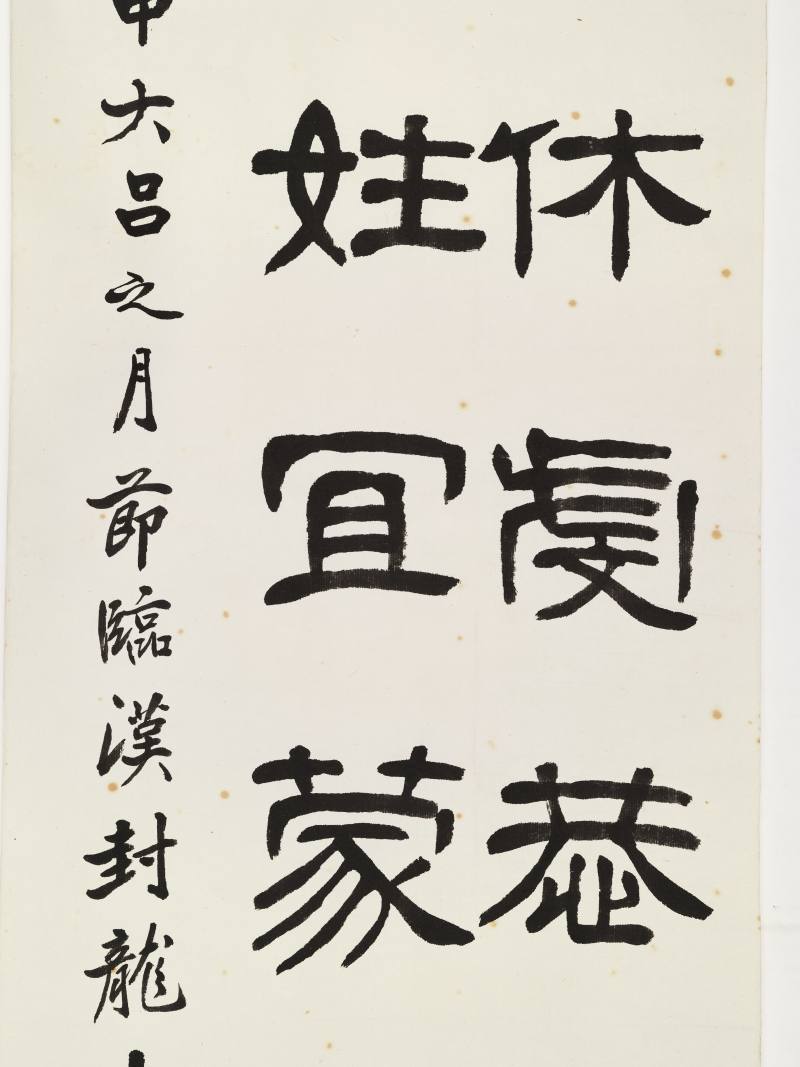 休虔恭
姓宜蒙
申大呂之月節臨漢封龍